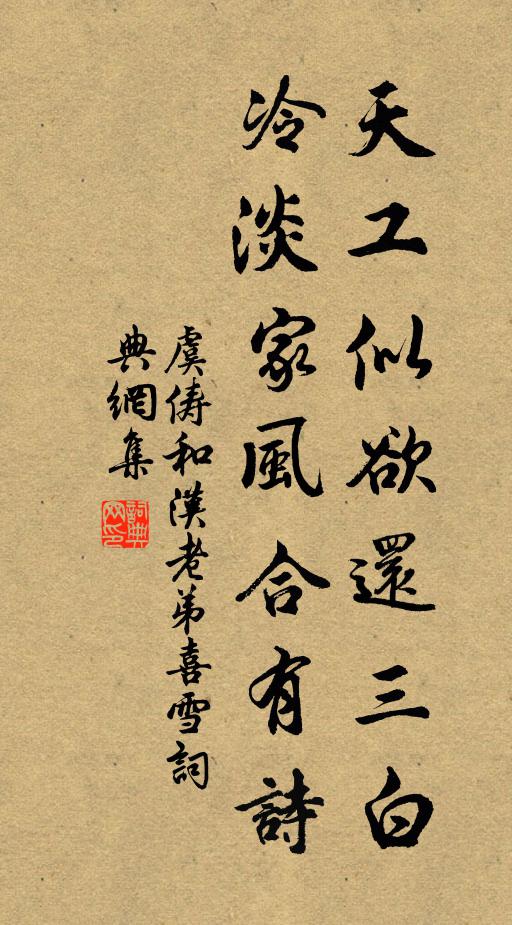 天工似欲還三白
冷淡家風合有詩
虞儔和漢老弟喜雪詞
典網集
詞典
网印